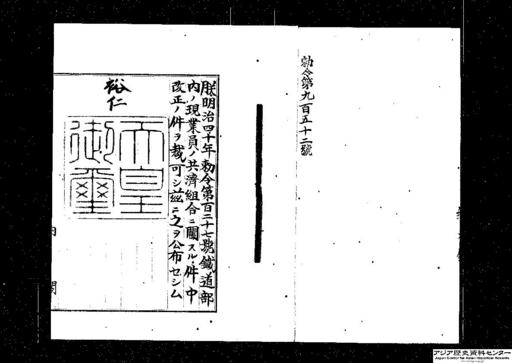 勅令第九百五十二號
朕明治四十年勅令第百二十七號鐵道部
内ノ現業員ノ共濟組合ニ關スル件中
改正ノ件ヲ裁可シ茲ニ之ヲ公布セシム
裕仁
天皇御璽
内閣
アジア歴史資料センター
Japan Center for Asian Historical Records